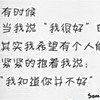 有时候
当我说“我很好”时
其实我希望有个人能
紧紧的抱着我说：
“我知道你并不好”